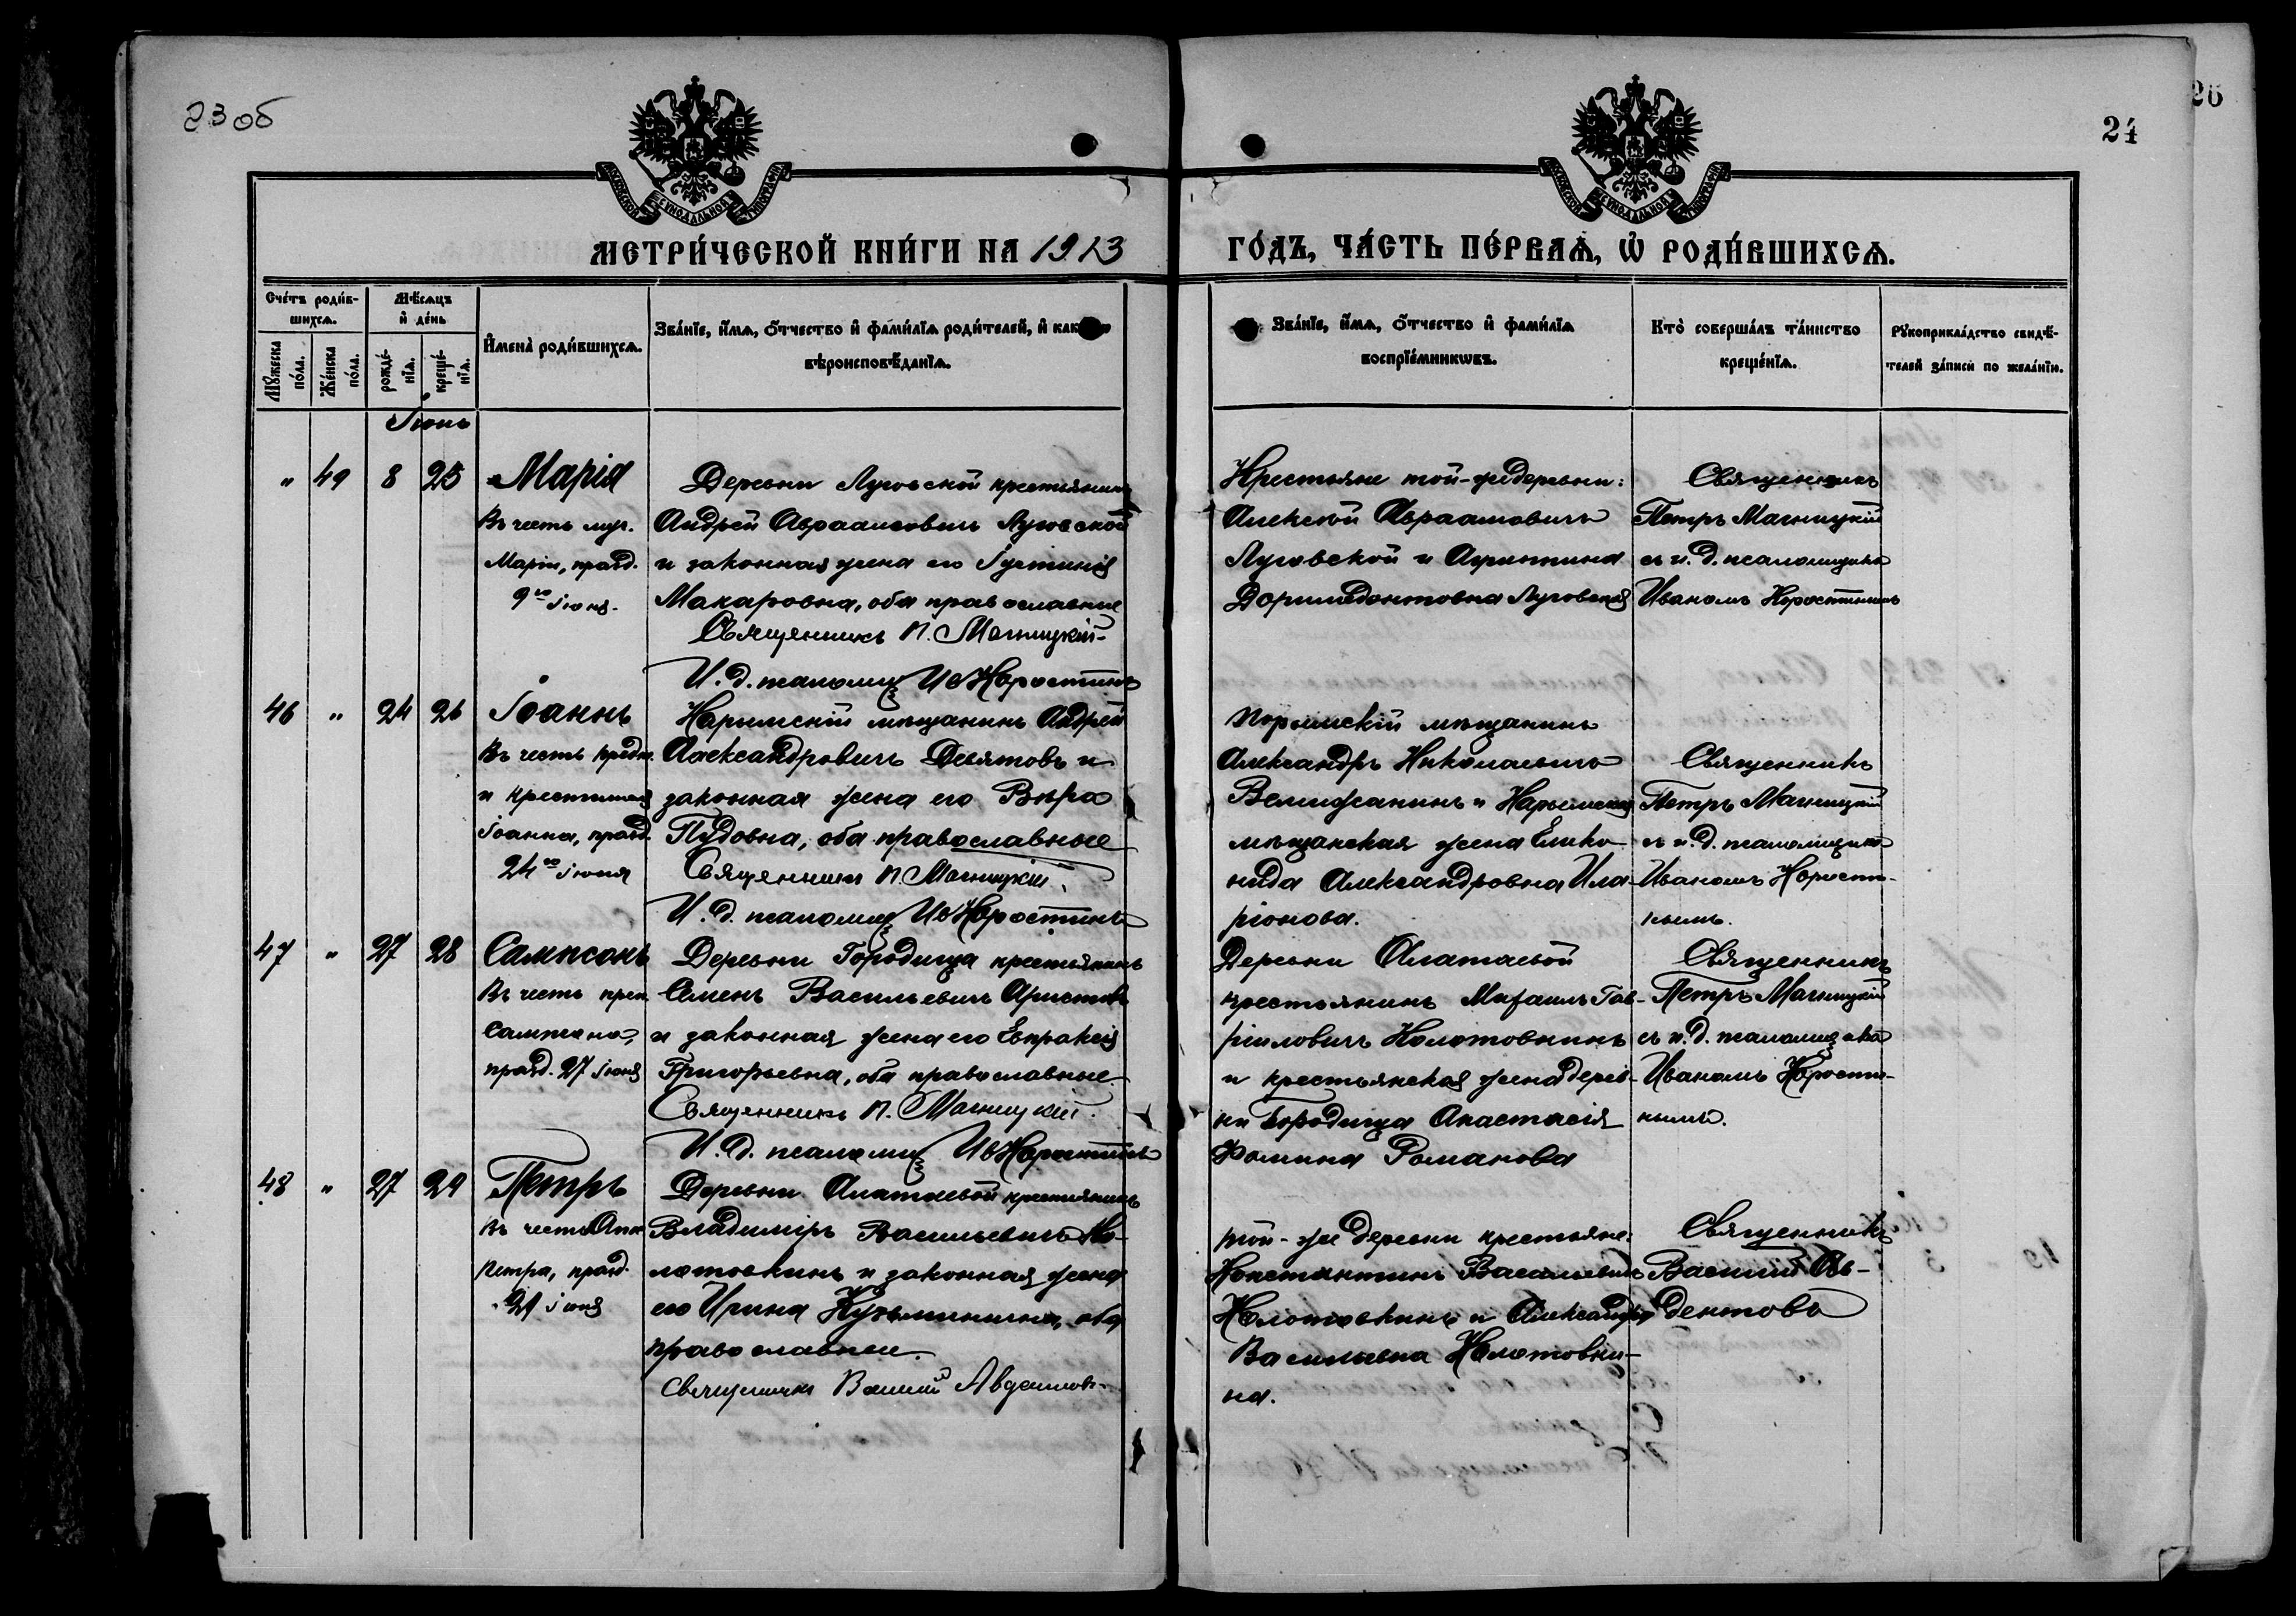 23 об
24
26
МЕТРИ́ЧЕСКОЙ КНИ́ГИ НА 1913
ГО́ДЪ, ЧА́СТЬ ПЕ́РВАѦ, Ѡ҆ РОДИ́ВШИХСѦ.
Сче́тъ роди́в-
шихсѧ.
Мꙋ́жеска по́ла.
Же́нска по́ла.
Мѣ́сѧцъ
и҆ де́нь
рожде́-
нїѧ.
креще́-
нїѧ.
И҆мена̀ роди́вшихсѧ.
Зва́нїе, и҆́мѧ, ѻ҆́тчество и҆ фами́лїѧ роди́телей, и҆
вѣроисповѣ́данїѧ.
Зва́нїе, и҆́мѧ, ѻ҆́тчество и҆ фами́лїѧ
воспрїе́мникѡвъ.
Кто̀ соверша́лъ та́инство
креще́нїѧ.
Рꙋкоприкла́дство свидѣ́-
телей за́писи по жела́нїю.
Іюнь
" 49 8 25 Марія
Въ честь муч.
Маріи, празд.
9го Іюня.
Деревни Луговской крестьянинъ
Андрей Авраамовичъ Луговской
и законная жена его Іустинія
Макаровна, оба православные
Священникъ П. Магницкій
И. д. псаломщ Ив Коростинъ
Крестьяне той-же деревни:
Алексѣй Авраамовичъ
Луговской и
Доримедонтовна Луговская
Священникъ
Петръ Магницкій
съ и. д. псаломщика
Иваномъ Коростинымъ
46 " 24 26 Іоаннъ
Въ честь предт.
и крестителя
Іоанна, празд.
24го Іюня
Нарымскій мѣщанинъ Андрей
Александровичъ Девятовъ и
законная жена его Вѣра
Пудовна, оба православные
Священникъ П. Магницкій
И. д. псаломщ Ив Коростинъ
Нарымскій мѣщанинъ
Александръ Николаевичъ
Велижанинъ и Нарымская
мѣщанская жена Елико-
нида Александровна Ила-
ріонова.
Священникъ
Петръ Магницкій
съ и. д. псаломщика
Иваномъ Корости-
нымъ.
47 " 27 28 Сампсонъ
Въ честь преп.
Сампсона,
празд. 27 Іюня
Деревни Городища крестьянинъ
Семенъ Васильевичъ Аристовъ
и законная жена его Евпраксія
Григорьевна, оба православные.
Священникъ П. Магницкій.
И. д. псаломщ Ив Коростинъ
Деревни Алатаевой
крестьянинъ Михаилъ Гав-
ріиловичъ Колотовкинъ
и крестьянская жена дерев-
ни Городища Анастасія
Фомина Романова
Священникъ
Петръ Магницкій
съ и. д. псаломщика
Иваномъ Корости-
нымъ.
48 " 27 29 Петръ
Въ честь Апп
Петра, празд.
29 Іюня
Деревни Алатаевой крестьянинъ
Владиміръ Васильевичъ Ко-
лотовкинъ и законная жена
его Ирина Кузьминична, оба
православные.
Священникъ Василій Авдентовъ
той-же деревни крестьяне:
Константинъ Васильевичъ
Колотовкинъ и Александра
Васильевна Колотовки-
на.
Священникъ
Василій Ав-
дентовъ